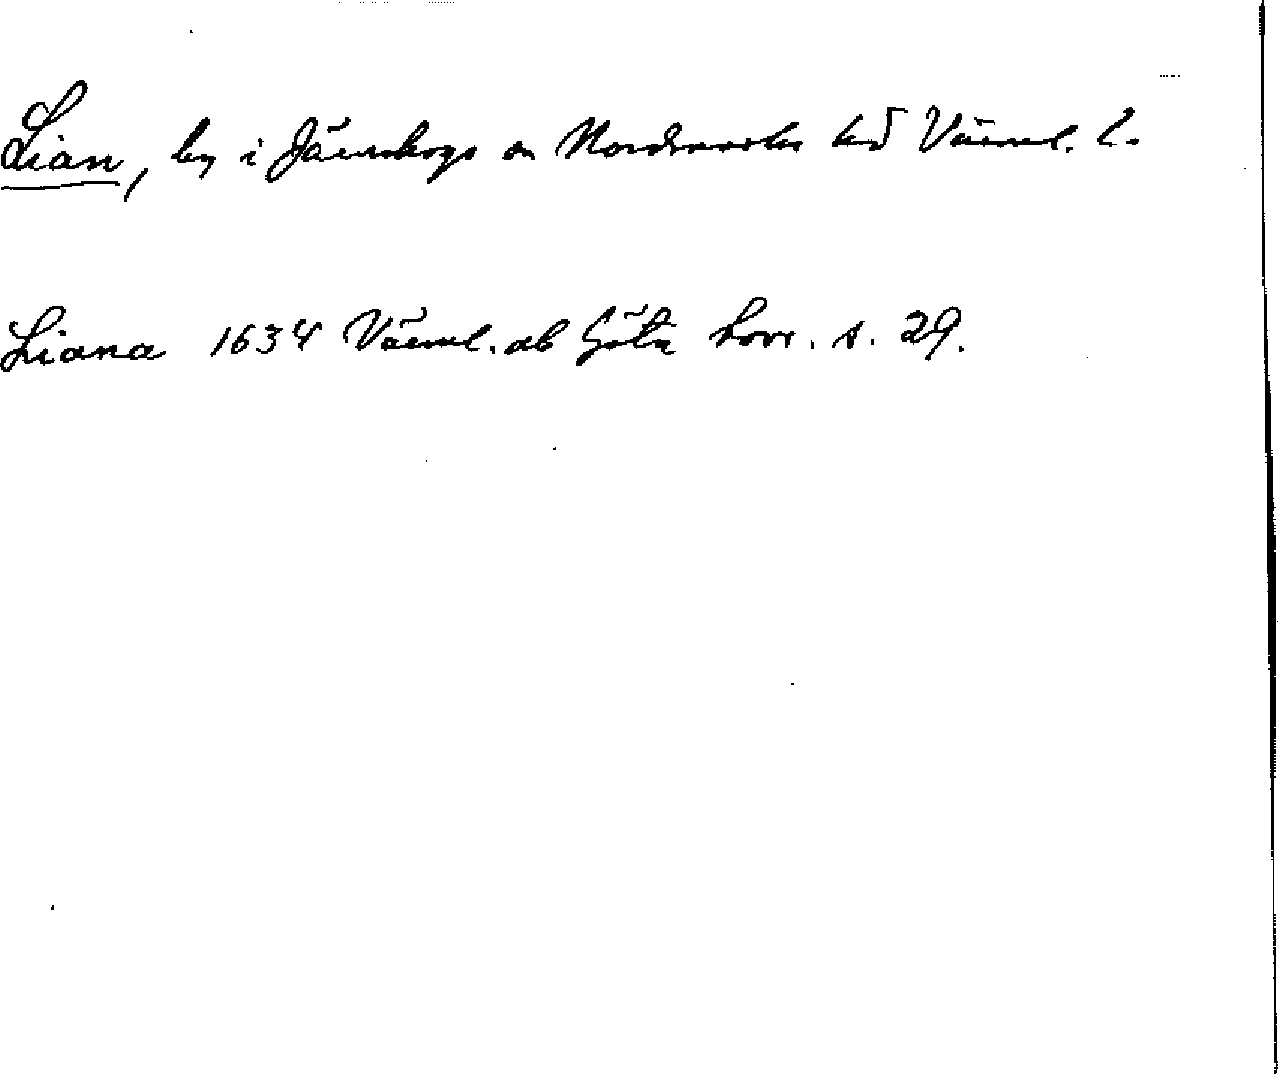 Lian, by i Järnskogs sn Nordmarks hd Värml. l.
Liana 1634 Värml. ab Göta hovr. s. 29.